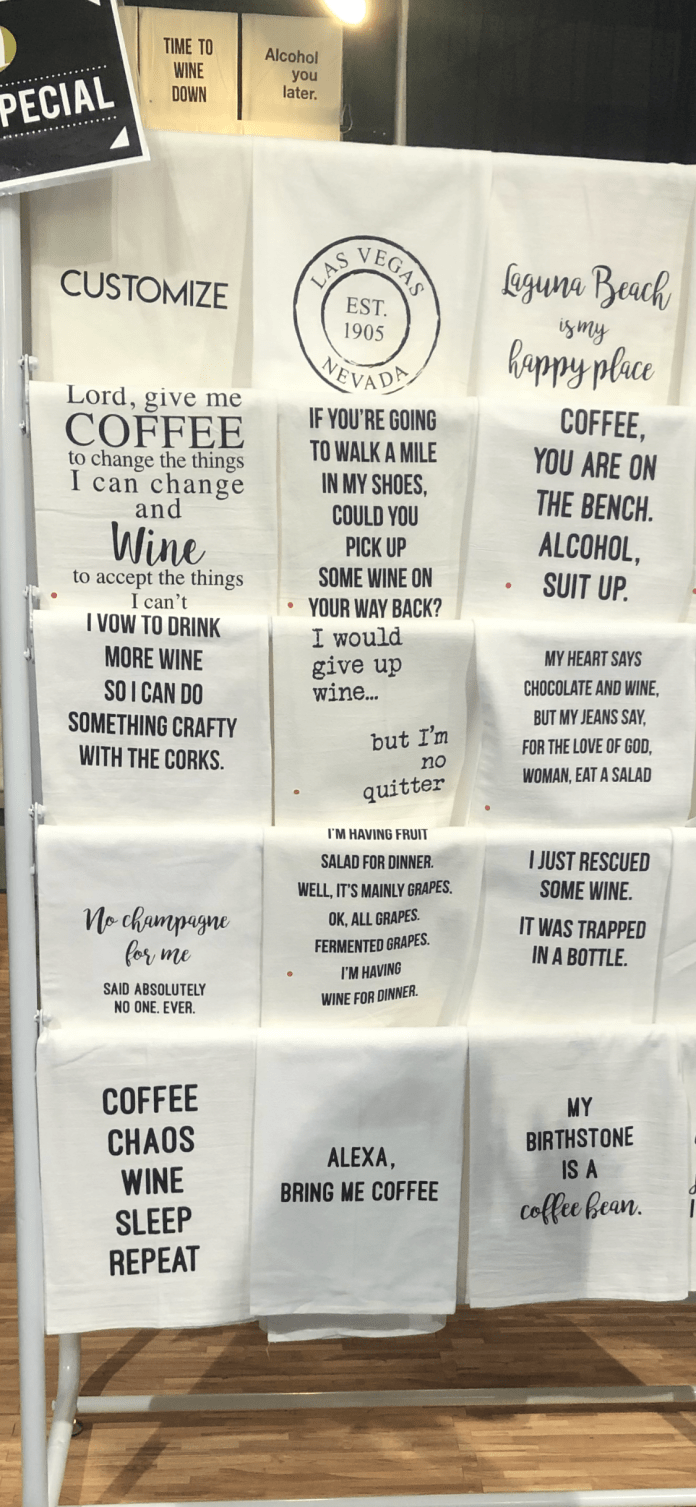 PECIAL
TIME TO
WINE
DOWN
Alcohol
you
later.
CUSTOMIZE
LAS VEGAS
EST.
1905
NEVADA
Laguna Beach
is my
happy place
Lord, give me
COFFEE
to change the things
I can change
and
Wine
to accept the things
I can't
IF YOU'RE GOING
TO WALK A MILE
IN MY SHOES,
COULD YOU
PICK UP
SOME WINE ON
YOUR WAY BACK?
COFFEE,
YOU ARE ON
THE BENCH.
ALCOHOL,
SUIT UP.
I VOW TO DRINK
MORE WINE
SO I CAN DO
SOMETHING CRAFTY
WITH THE CORKS.
I would
give up
wine...
but I'm
no
quitter
MY HEART SAYS
CHOCOLATE AND WINE,
BUT MY JEANS SAY,
FOR THE LOVE OF GOD,
WOMAN, EAT A SALAD
No champagne
for me
SAID ABSOLUTELY
NO ONE. EVER.
I'M HAVING FRUIT
SALAD FOR DINNER.
WELL, IT'S MAINLY GRAPES.
OK, ALL GRAPES.
FERMENTED GRAPES.
I'M HAVING
WINE FOR DINNER.
I JUST RESCUED
SOME WINE.
IT WAS TRAPPED
IN A BOTTLE.
COFFEE
CHAOS
WINE
SLEEP
REPEAT
ALEXA,
BRING ME COFFEE
MY
BIRTHSTONE
IS A
coffee bean.